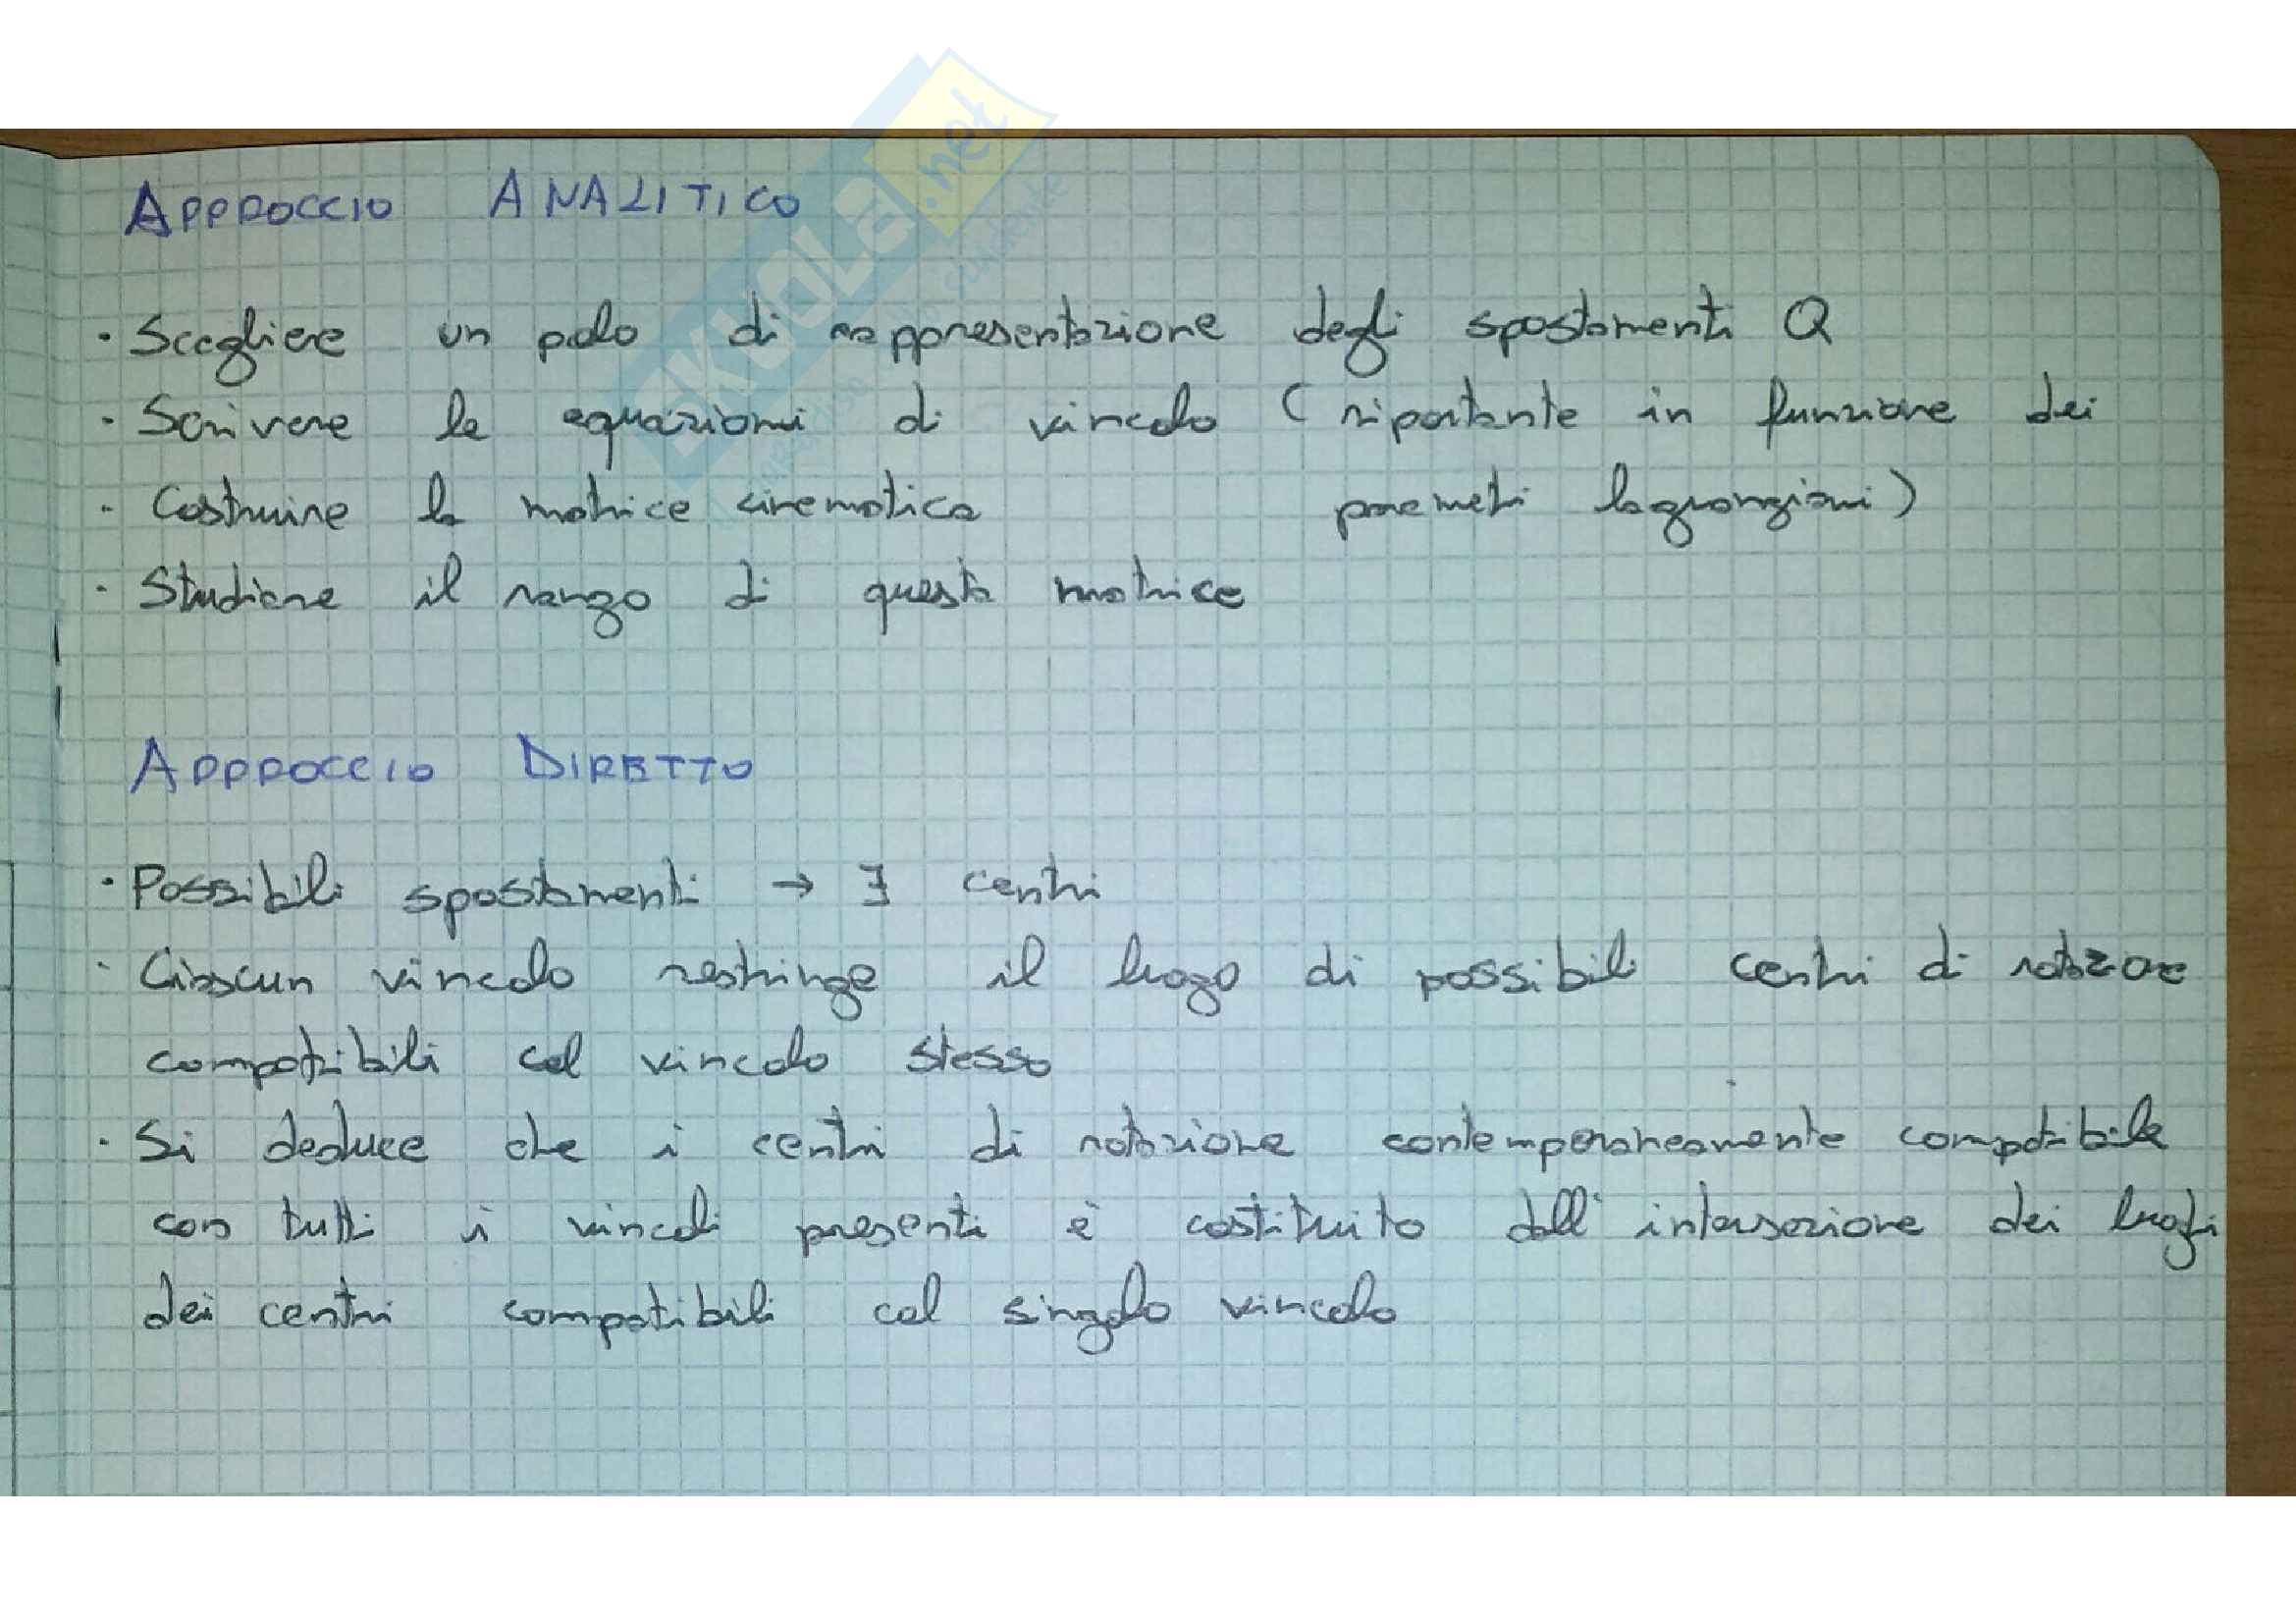 APPROCCIO ANALITICO
SKUOLA.net
· Scegliere un polo di rappresentazione degli spostamenti Q
· Scrivere le equazioni di vincolo ( riportante in funzione dei
· Costruire la matrice cinematica parametri lagrangiani)
· Studiare il rango di questa matrice
APPROCCIO DIRETTO
· Possibili spostamenti → ∃ centri
· Ciascun vincolo restringe il luogo di possibili centri di rotazione
compatibili col vincolo stesso
· Si deduce che i centri di rotazione contemporaneamente compatibile
con tutti i vincoli presenti è costituito dall' intersezione dei luoghi
dei centri compatibili col singolo vincolo